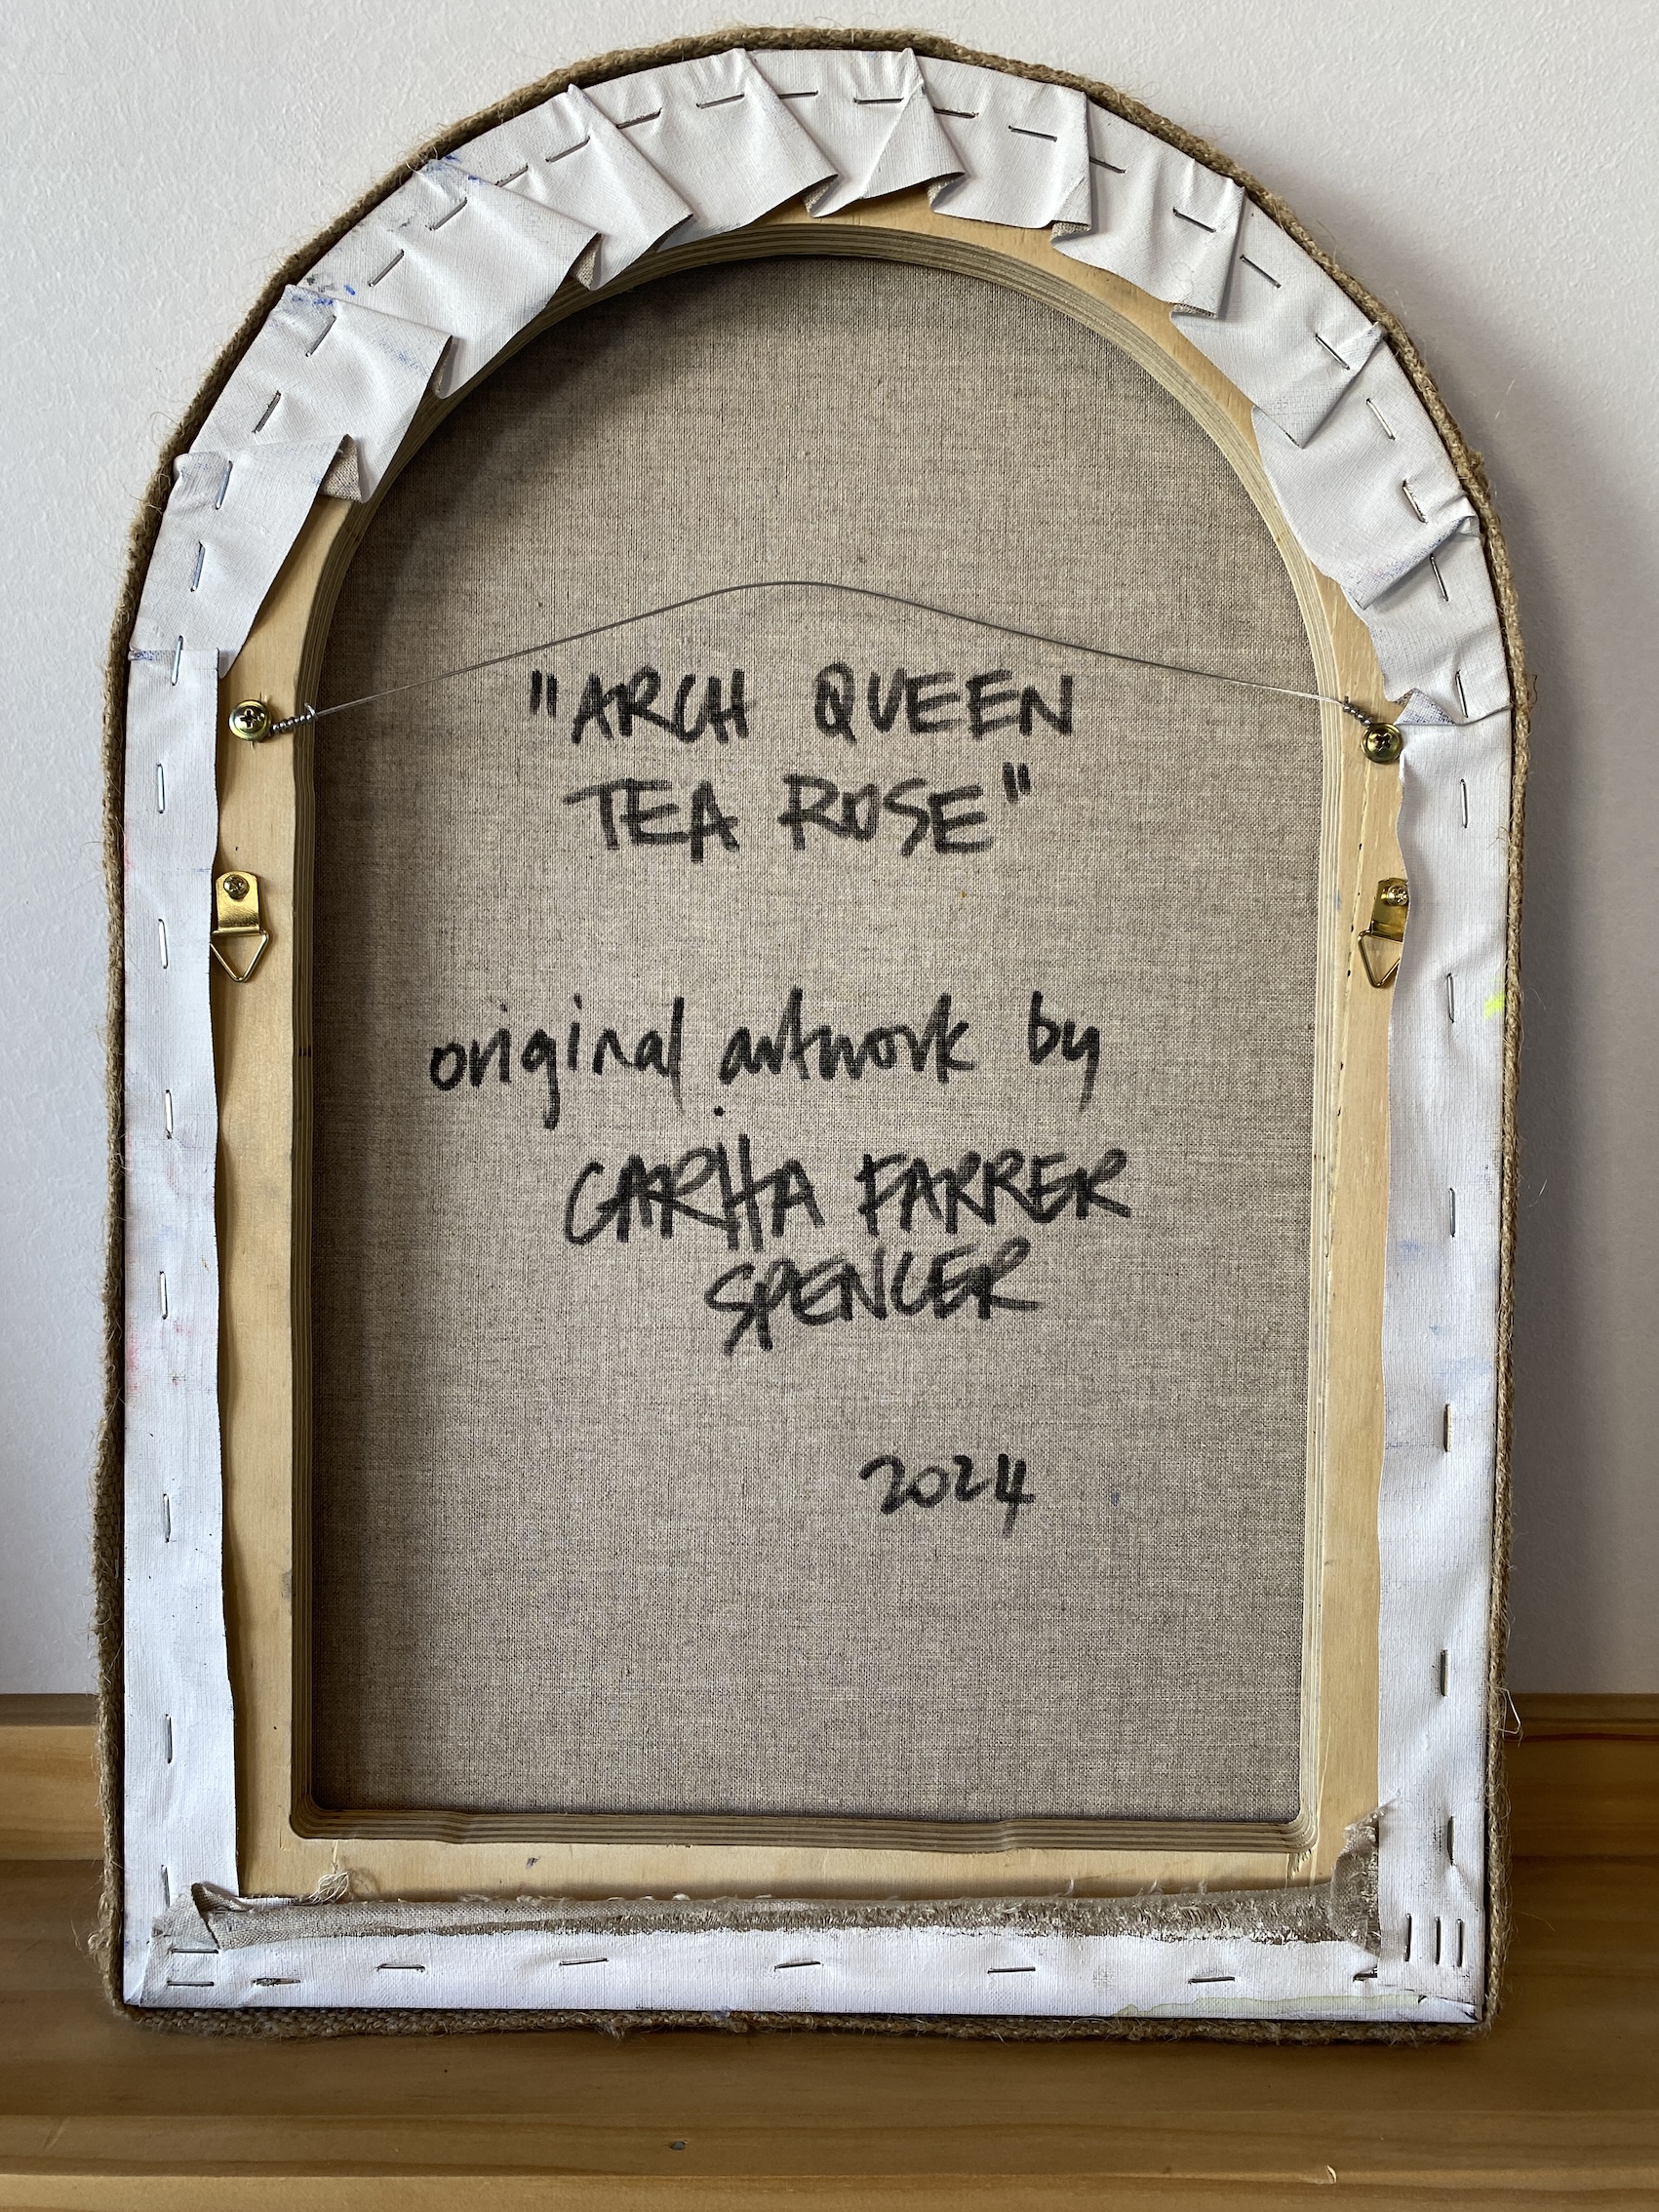 "ARCH QUEEN
TEA ROSE"
original artwork by
CARITA FARRER
SPENCER
2024